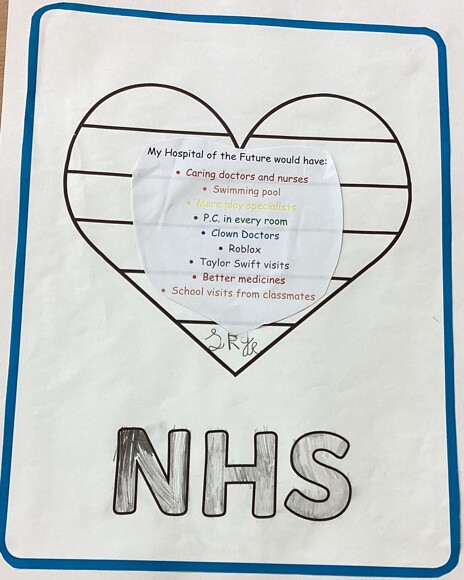 My Hospital of the Future would have:
• Caring doctors and nurses
• Swimming pool
• More play specialists
• P.C. in every room
• Clown Doctors
• Roblox
• Taylor Swift visits
• Better medicines
• School visits from classmates
NHS